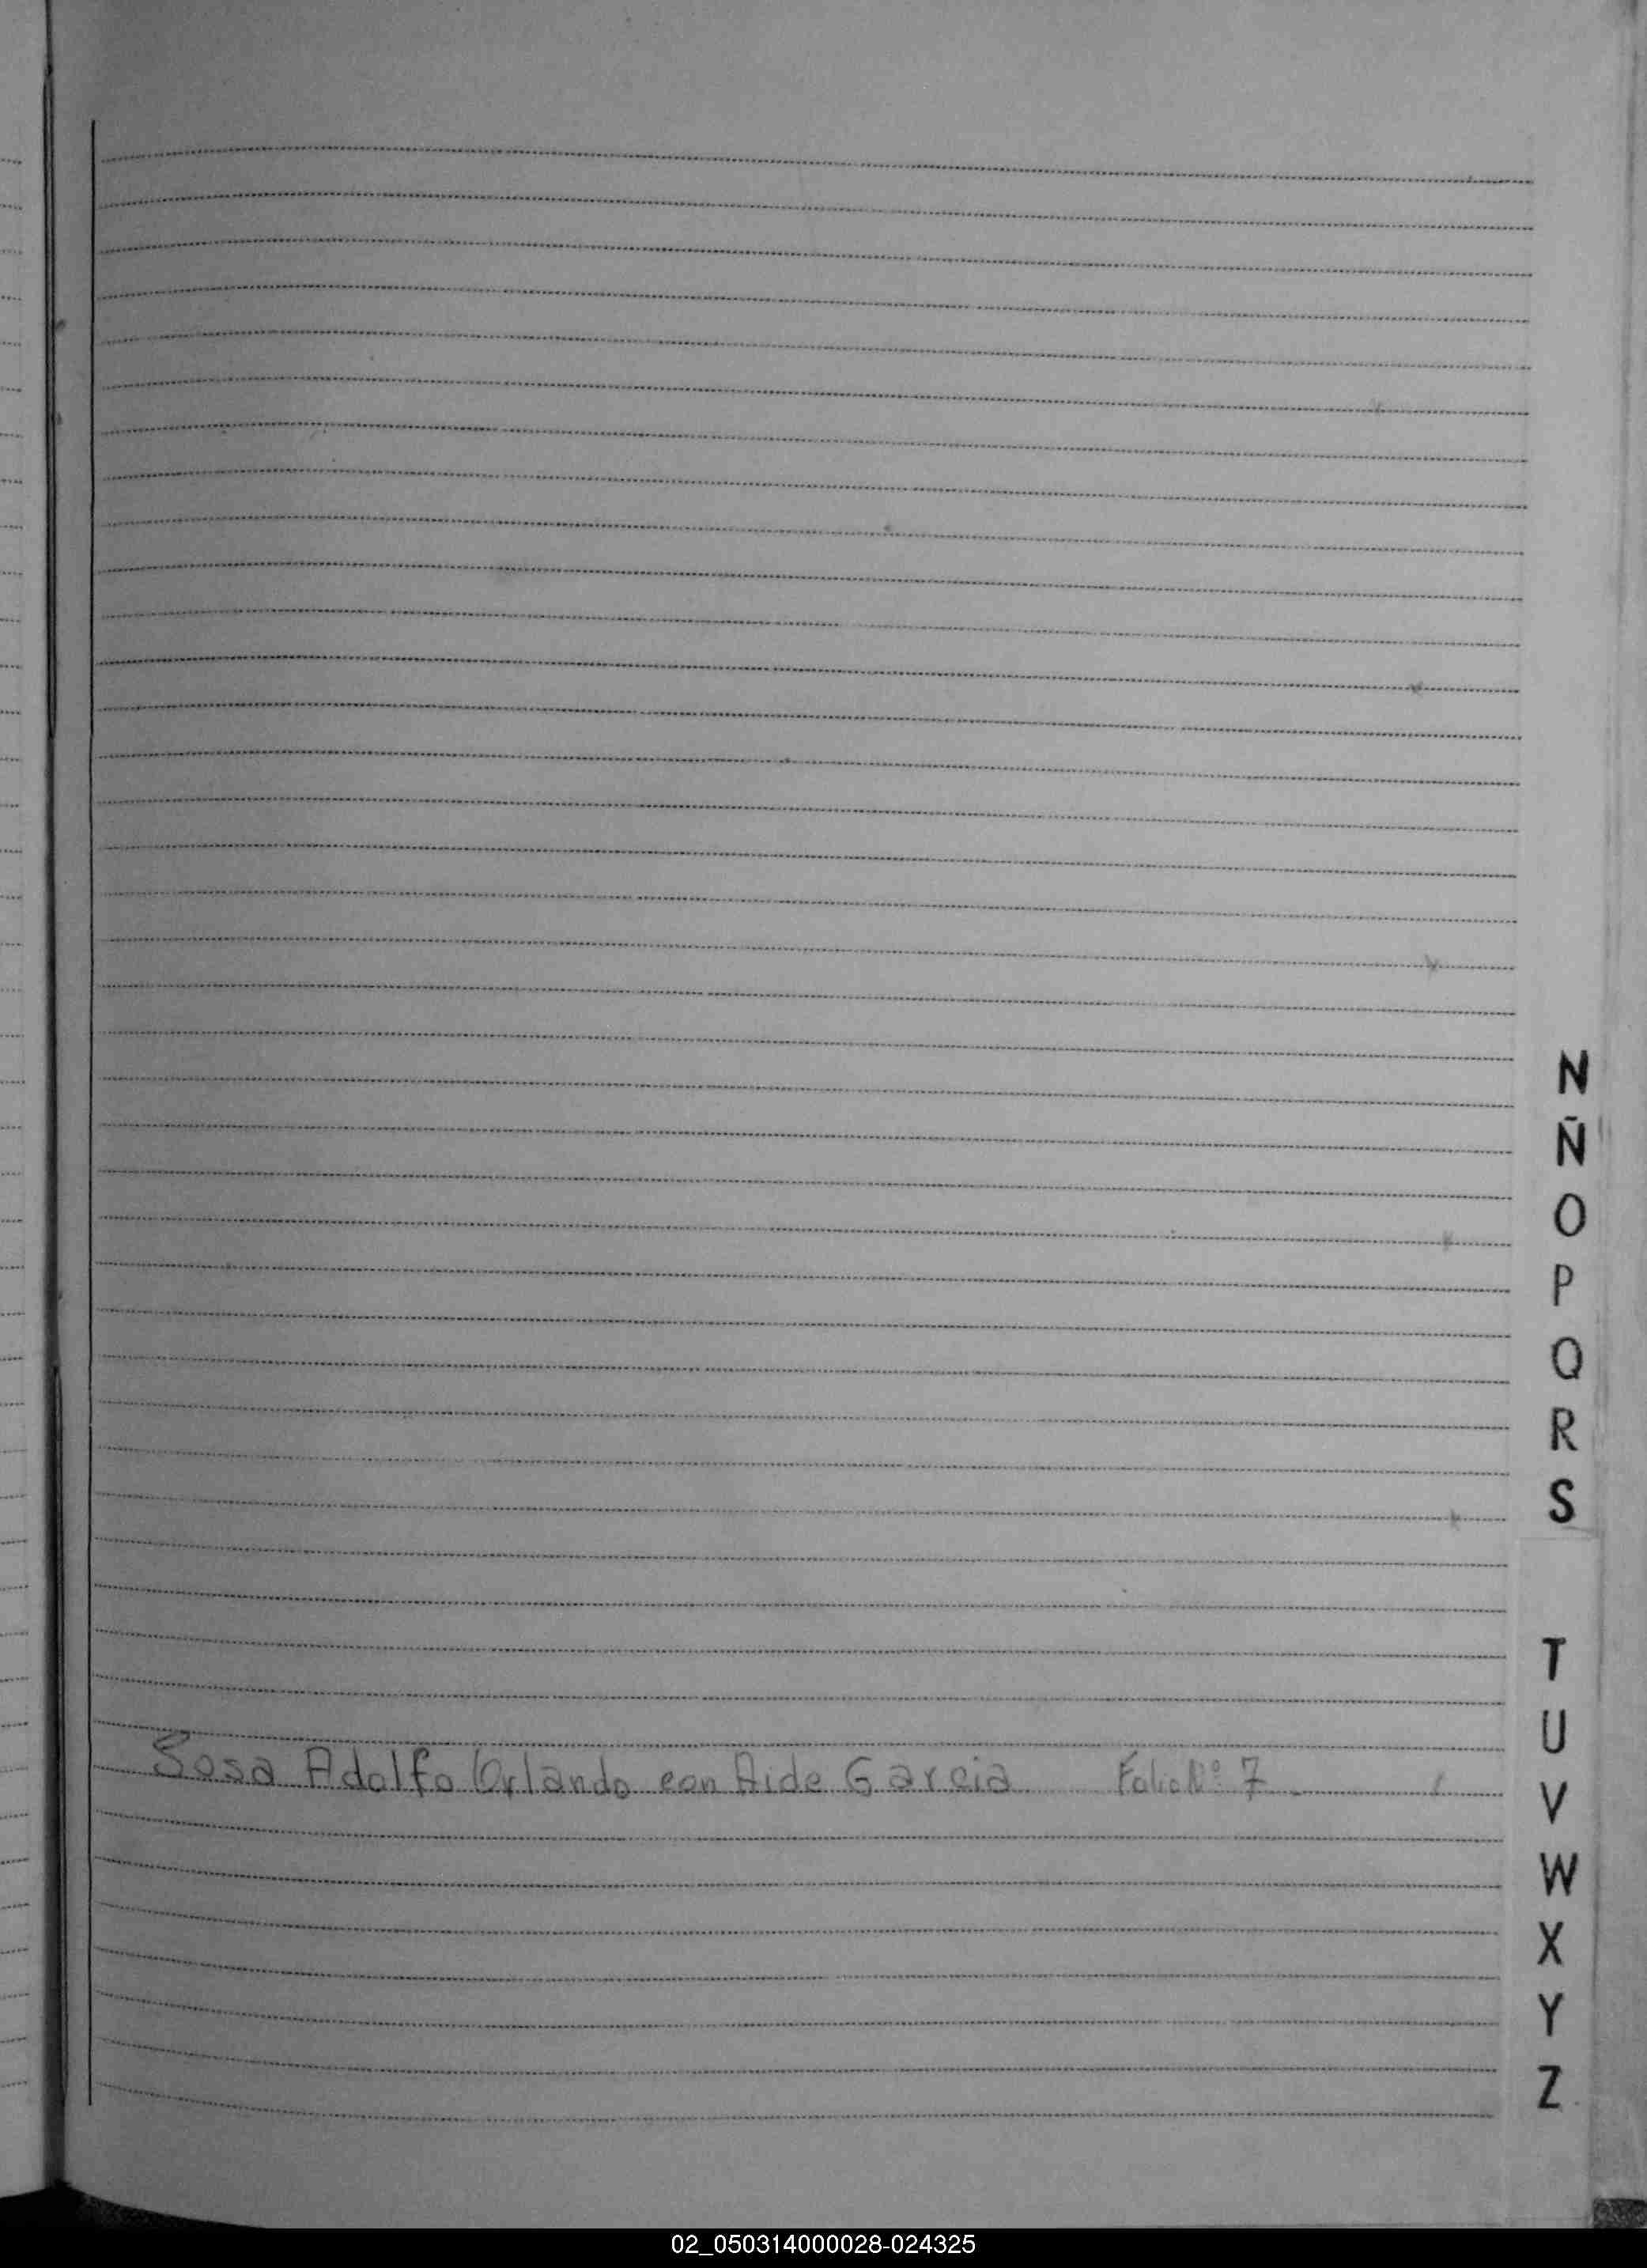 N
Ñ
O
P
Q
R
S
T
U
V
W
X
Y
Z
Sosa Adolfo Orlando con Aide Garcia Folio Nº 7
02_050314000028-024325